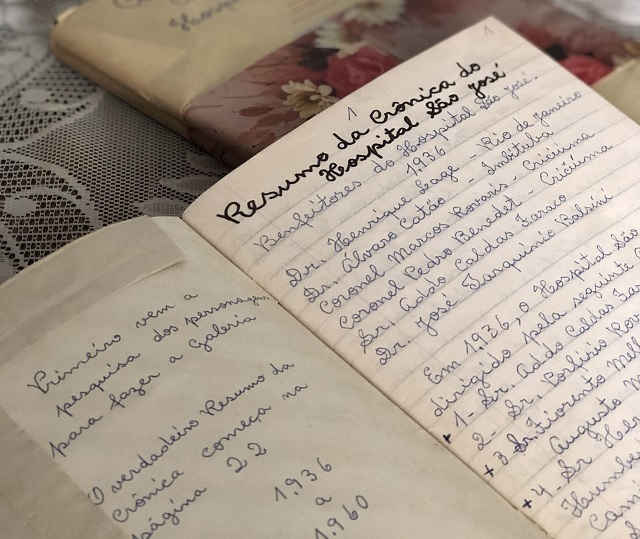 Hospital
Primeiro vem a
pesquisa dos personagens
para fazer a galeria
O verdadeiro Resumo da
Crônica começa na
página 22
1.936
a
1.960
1
1
Resumo da Crônica do
Hospital São José
Benfeitores do Hospital São José.
1936
Dr. Henrique Lage - Rio de Janeiro
Dr. Álvaro Catão - Imbituba
Coronel Marcos Rovaris - Criciúma
Coronel Pedro Benedet - Criciúma
Sr. Addo Caldas Faraco
Dr. José Tarquínio Balsini
Em 1.936, o Hospital São
dirigido pela seguinte
+ 1- Sr. Addo Caldas Far
2- Sr. Porfírio Rov
+ 3- Sr. Fiorento Mell
Augusto M
+ 4- Sr He
Humbe
Cam